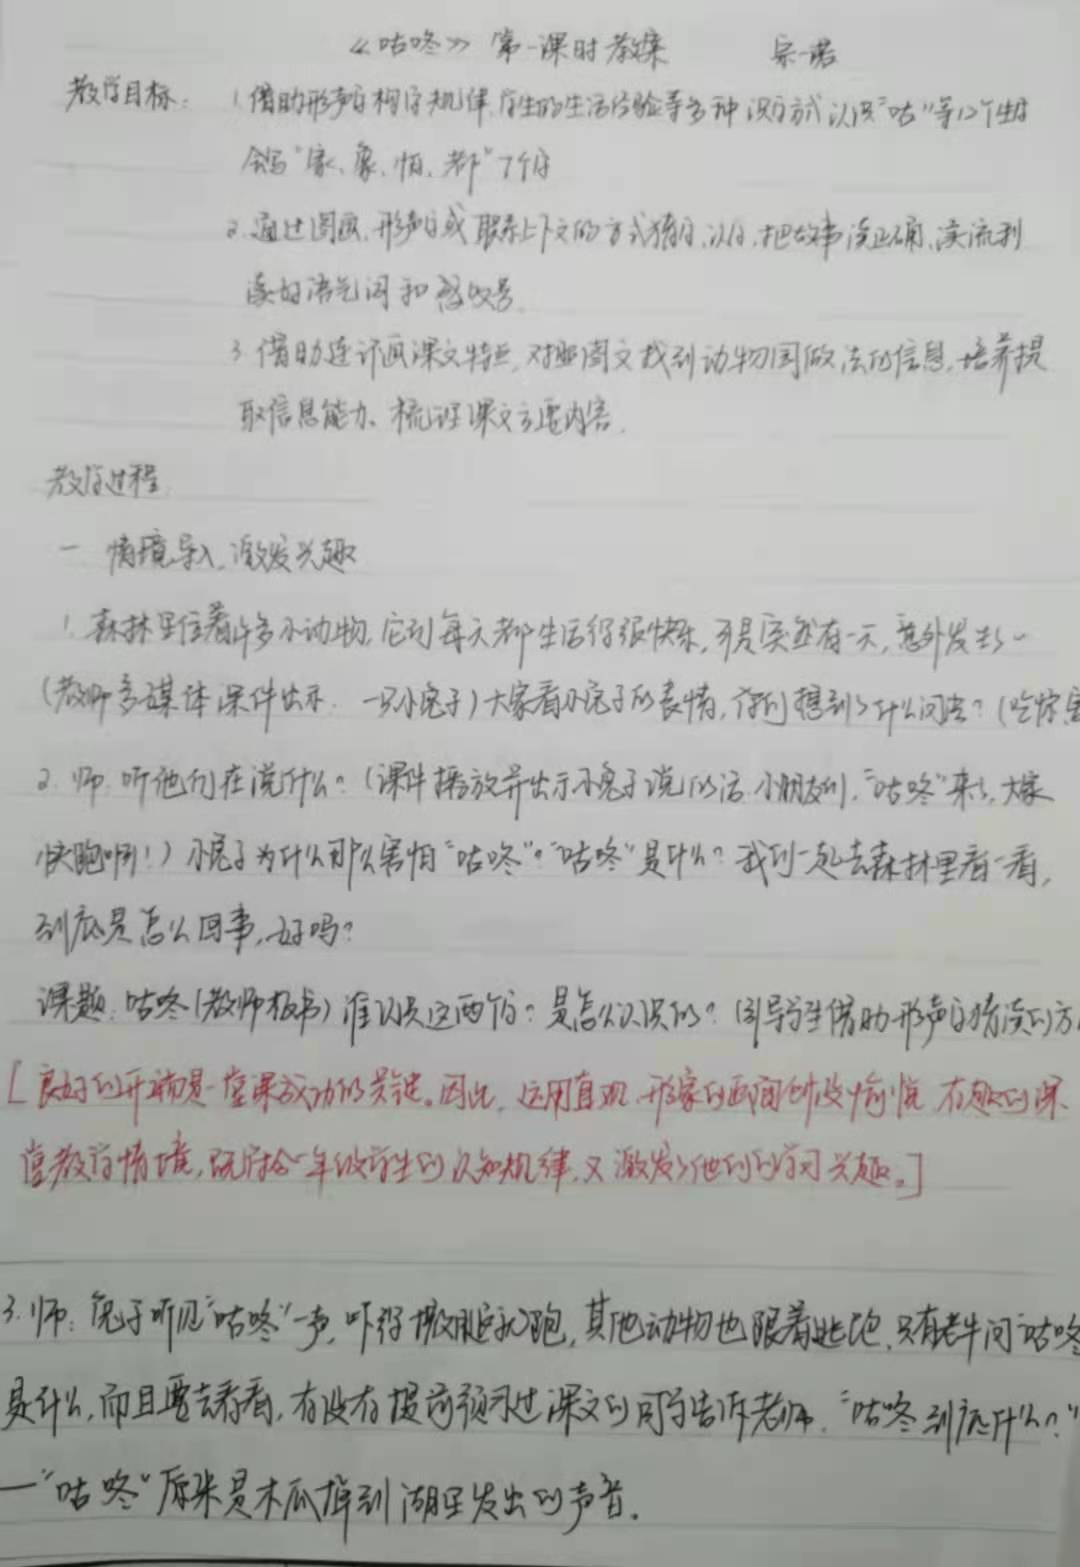 《咕咚》第一课时教案 宗一诺
教学目标: 1.借助形声字构字规律,学生的生活经验等多种识字方式认识"咕"等12个生字
会写"家、象、怕、都"7个字
2.通过图画、形声字或联系上下文的方式猜字、认字,把故事读正确、读流利
读好语气词和感叹号.
3.借助连环画课文特点,对照图文找到动物国做法的信息,培养提
取信息能力、梳理课文主要内容.
教学过程
一 情境导入,激发兴趣
1.森林里住着许多小动物,它们每天都生活得很快乐,可是突然有一天,意外发生了一
(教师多媒体课件出示 一只小兔子)大家看小兔子的表情,你们想到了什么问法?(吃惊害
2.师:听他们在说什么?(课件播放并出示小兔子说的话 小朋友们,"咕咚"来了,大家
快跑啊!)小兔子为什么那么害怕"咕咚"?"咕咚"是什么?我们一起去森林里看一看,
到底是怎么回事,好吗?
课题:咕咚(教师板书)谁认识这两个字?是怎么认识的?(引导学生借助形声字猜读的方
[良好的开端是一堂课成功的关键。因此,运用直观、形象的画面创设愉悦、有趣的课
堂教学情境,既符合一年级学生的认知规律,又激发了他们的学习兴趣。]
3.师:兔子听见"咕咚"一声,吓得撒腿就跑,其他动物也跟着跑,只有老牛问"咕咚
是什么,而且要去看看,有没有提前预习过课文的同学告诉老师,"咕咚到底什么?"
一"咕咚"原来是木瓜掉到湖里发出的声音.